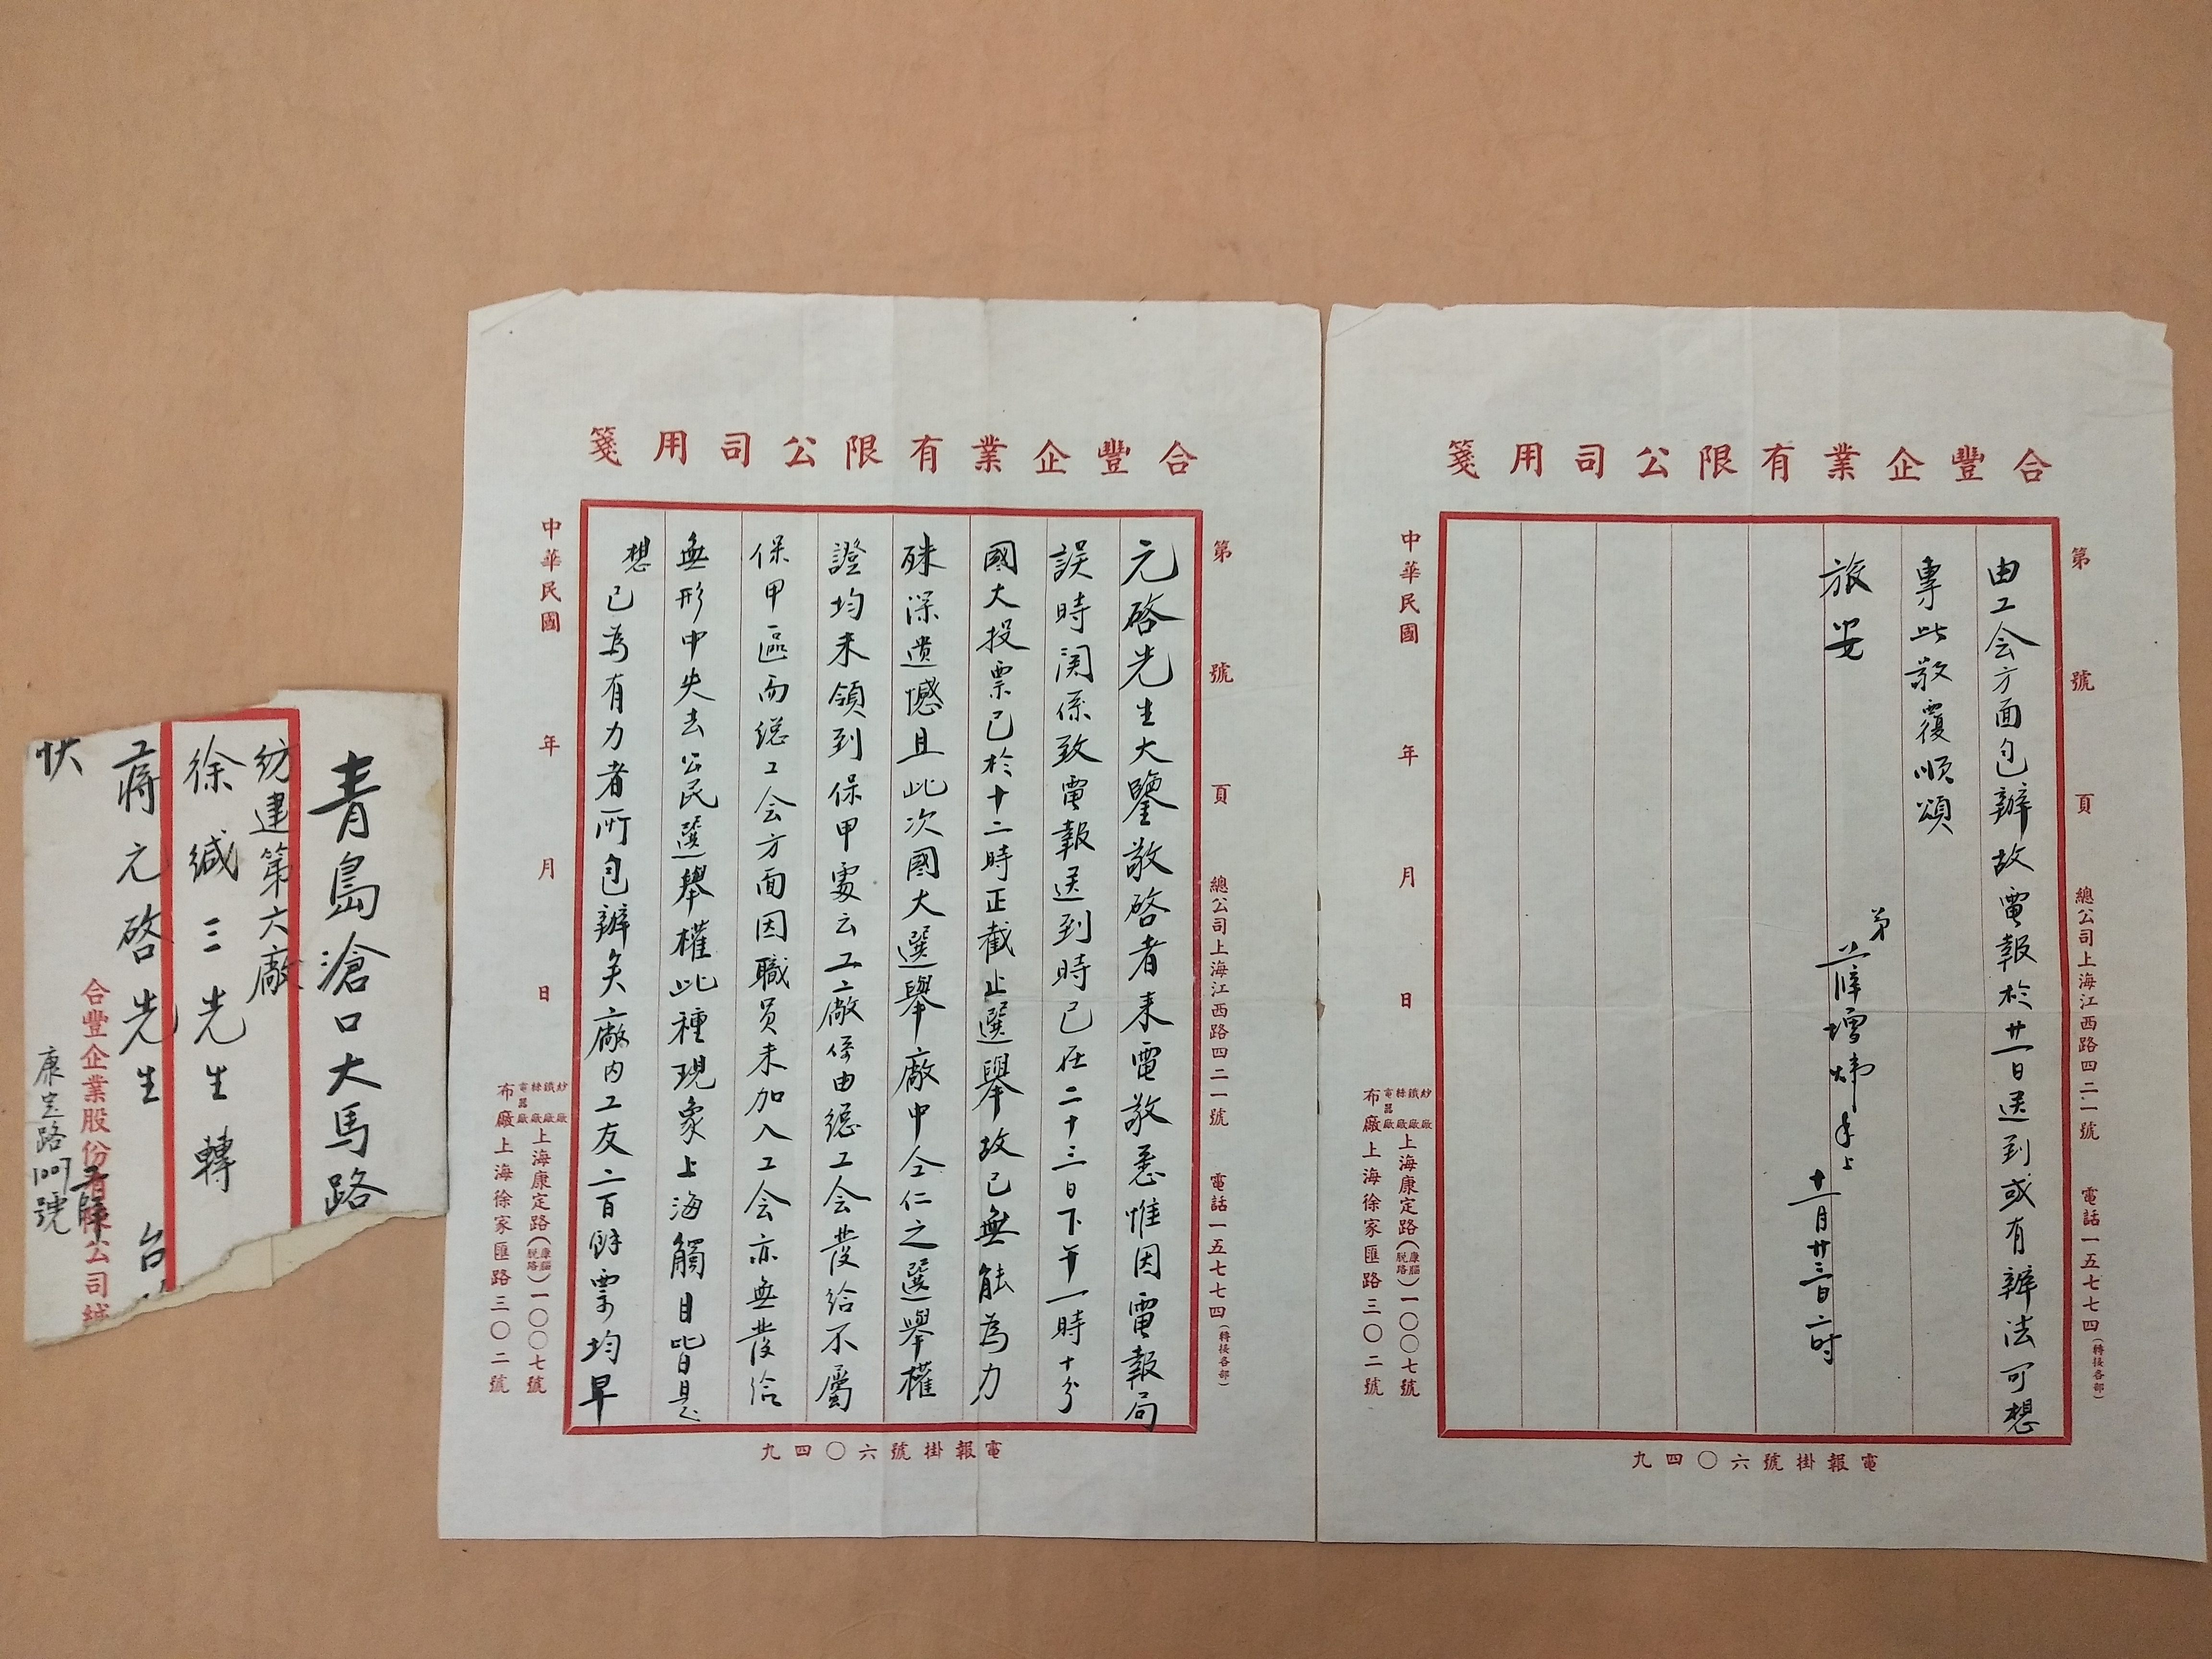 青島滄口大馬路
紡建第六廠
徐緘三先生轉
蔣元啓先生 台
快
合豐企業股份有限公司緘
康定路1007號
合豐企業有限公司用箋
第 號 頁
總公司上海江西路四二一號 電話一五七七四(轉接各部)
元啓先生大鑒敬啓者来電敬悉惟因電報局
誤時関係致電報送到時已在二十三日下午一時十分
國大投票已於十二時正截止選舉故已無能為力
殊深遺憾且此次國大選舉廠中仝仁之選舉權
證均未領到保甲處云工廠係由總工会發給不屬
保甲區而總工会方面因職员未加入工会亦無發给
無形中失去公民選舉權此種現象上海觸目皆是
想已為有力者所包辦矣廠内工友二百餘票均早
中華民國 年 月 日
紗廠 鐵廠 絲廠 電器廠 上海康定路(康腦脱路)一〇〇七號
布廠上海徐家匯路三〇二號
電報掛號六〇四九
合豐企業有限公司用箋
第 號 頁
總公司上海江西路四二一號 電話一五七七四(轉接各部)
由工会方面包辦故電報於廿一日送到或有辦法可想
專此敬覆順頌
旅安
弟 薛增煒手上
十一月廿三日二时
中華民國 年 月 日
紗廠 鐵廠 絲廠 電器廠 上海康定路(康腦脱路)一〇〇七號
布廠上海徐家匯路三〇二號
電報掛號六〇四九